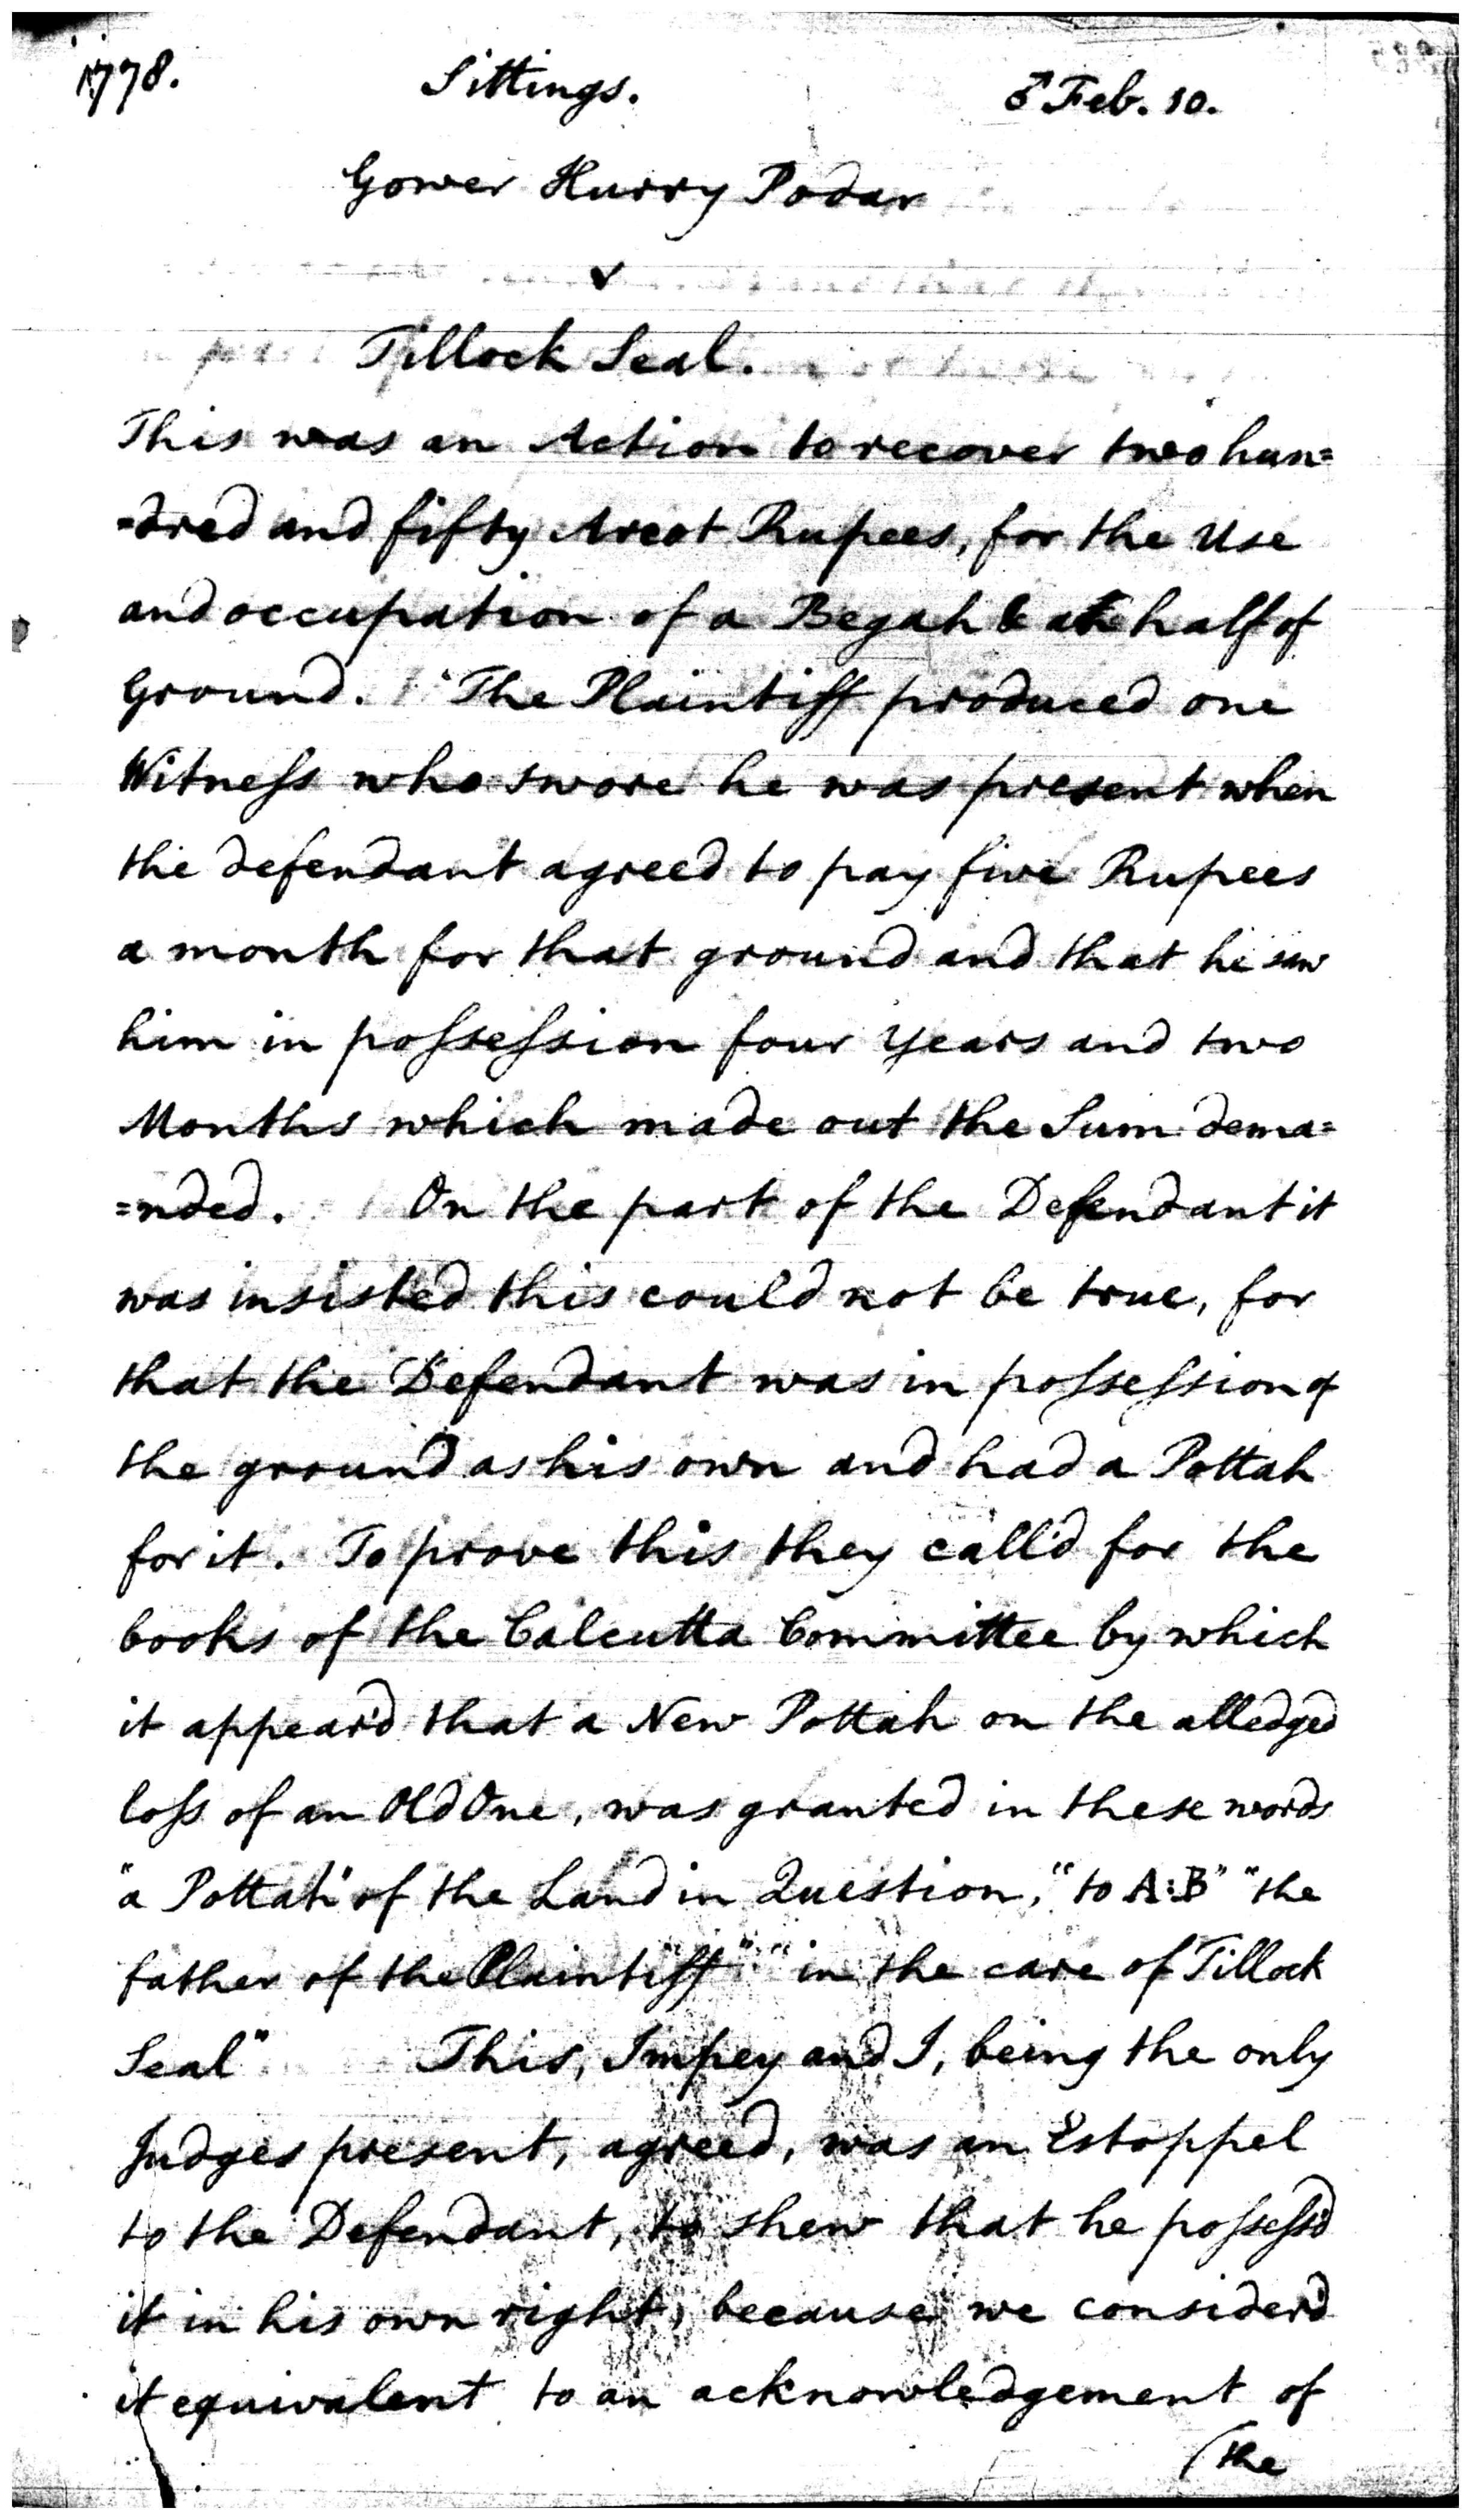 1778. Sittings. ♂ Feb. 10.
Gower Hurry Podar
v
Tillock Seal.
This was an Action to recover two hun=
=dred and fifty Arcot Rupees, for the Use
and occupation of a Begah & a half of
Ground. The Plaintiff produced one
Witneſs who swore he was present when
the defendant agreed to pay five Rupees
a month for that ground and that he saw
him in poſseſsion four Years and two
Months which made out the Sum dema=
=nded. On the part of the Defendant it
was insisted this could not be true, for
that the Defendant was in poſseſsion of
the ground as his own and had a Pottah
for it. To prove this they call'd for the
books of the Calcutta Committee by which
it appear'd that a New Pottah on the alledged
loſs of an Old One, was granted in these words
"a Pottah" of the Land in Question, "to A:B" "the
father of the Plaintiff" "in the care of Tillock
Seal" This, Impey and I, being the only
Judges present, agreed, was an Estoppel
to the Defendant, to shew that he poſseſs'd
it in his own right, because we consider'd
it equivalent to an acknowledgement of
(the